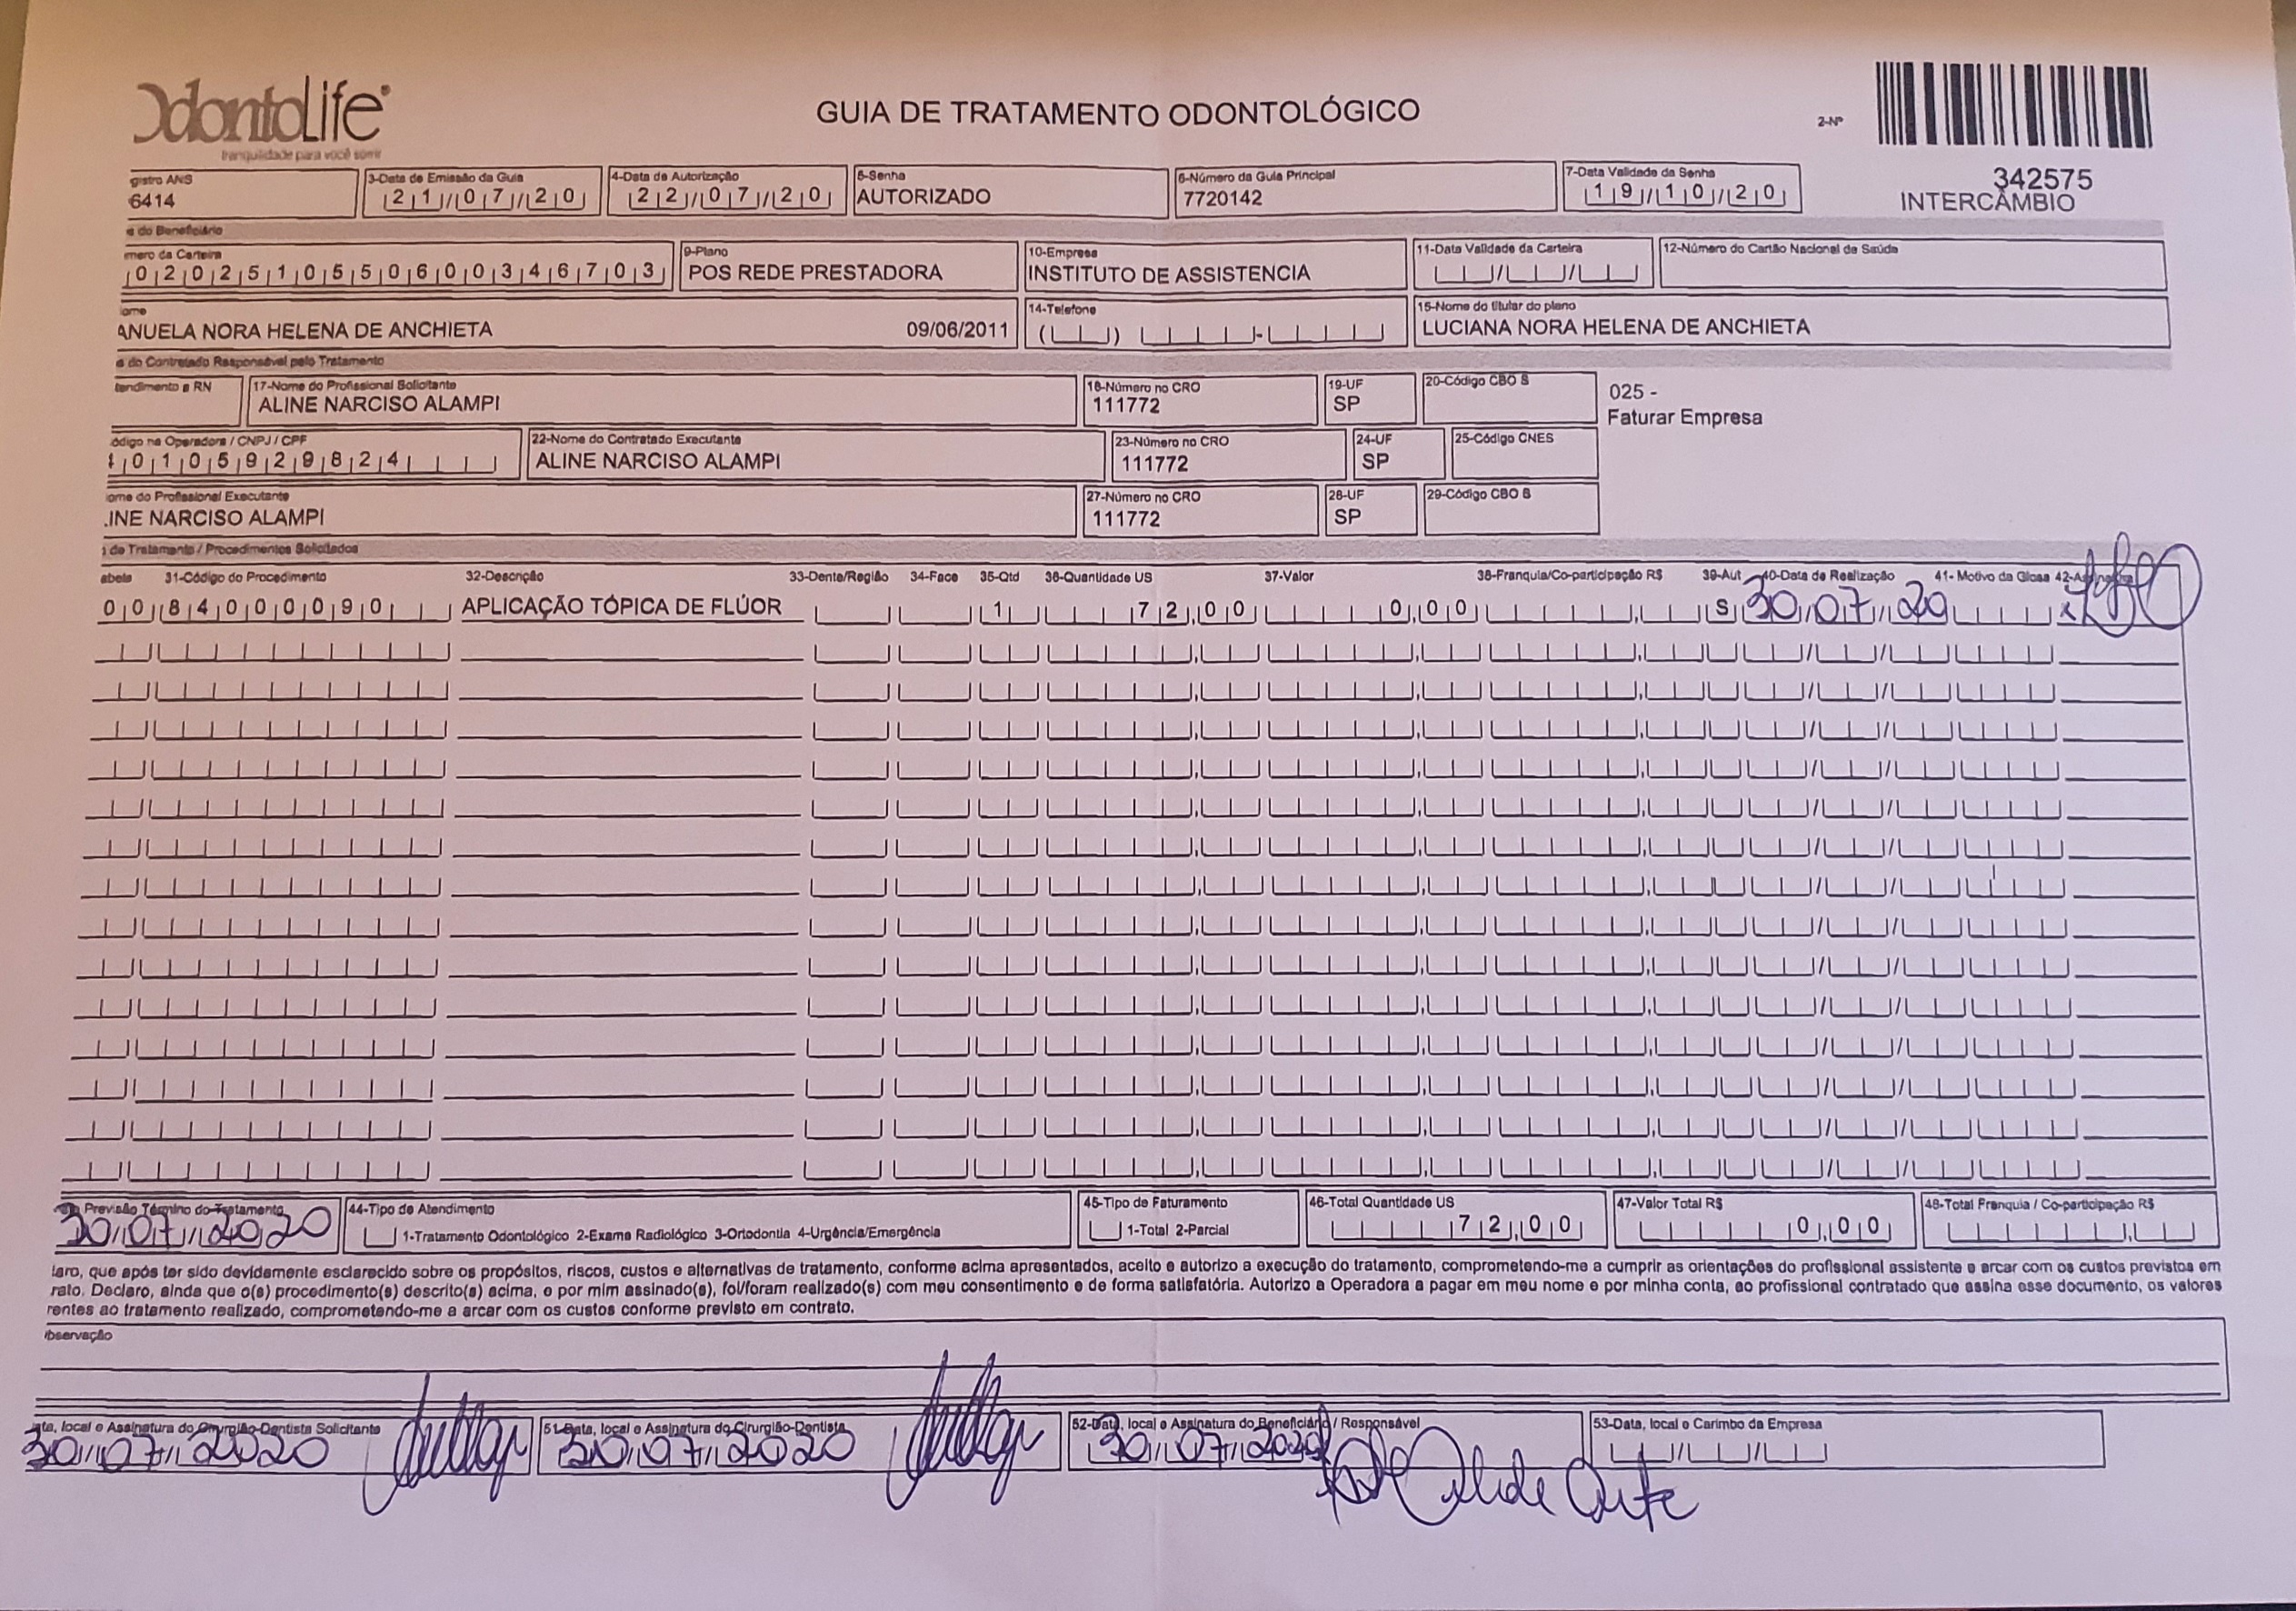 OdontoLife®
tranquilidade para você sorrir
GUIA DE TRATAMENTO ODONTOLÓGICO
2-Nº
342575
INTERCÂMBIO
gistro ANS
6414
3-Data de Emissão da Guia
21/07/20
4-Data de Autorização
22/07/20
5-Senha
AUTORIZADO
6-Número da Guia Principal
7720142
7-Data Validade da Senha
19/10/20
s do Beneficiário
mero da Carteira
0202510550600346703
9-Plano
POS REDE PRESTADORA
10-Empresa
INSTITUTO DE ASSISTENCIA
11-Data Validade da Carteira
12-Número do Cartão Nacional de Saúde
ome
ANUELA NORA HELENA DE ANCHIETA 09/06/2011
14-Telefone
15-Nome do titular do plano
LUCIANA NORA HELENA DE ANCHIETA
s do Contratado Responsável pelo Tratamento
tendimento a RN
17-Nome do Profissional Solicitante
ALINE NARCISO ALAMPI
18-Número no CRO
111772
19-UF
SP
20-Código CBO S
025 -
Faturar Empresa
ódigo na Operadora / CNPJ / CPF
0105929824
22-Nome do Contratado Executante
ALINE NARCISO ALAMPI
23-Número no CRO
111772
24-UF
SP
25-Código CNES
ome do Profissional Executante
.INE NARCISO ALAMPI
27-Número no CRO
111772
28-UF
SP
29-Código CBO S
de Tratamento / Procedimentos Solicitados
abela 31-Código do Procedimento 32-Descrição 33-Dente/Região 34-Face 35-Qtd 36-Quantidade US 37-Valor 38-Franquia/Co-participação R$ 39-Aut 40-Data de Realização 41- Motivo da Glosa 42-Assinatura
00 84000090 APLICAÇÃO TÓPICA DE FLÚOR 1 72,00 0,00 S 30/07/20
Previsão Término do Tratamento
30/07/2020
44-Tipo de Atendimento
1-Tratamento Odontológico 2-Exame Radiológico 3-Ortodontia 4-Urgência/Emergência
45-Tipo de Faturamento
1-Total 2-Parcial
46-Total Quantidade US
72,00
47-Valor Total R$
0,00
48-Total Franquia / Co-participação R$
laro, que após ter sido devidamente esclarecido sobre os propósitos, riscos, custos e alternativas de tratamento, conforme acima apresentados, aceito e autorizo a execução do tratamento, comprometendo-me a cumprir as orientações do profissional assistente e arcar com os custos previstos em
rato. Declaro, ainda que o(s) procedimento(s) descrito(s) acima, e por mim assinado(s), foi/foram realizado(s) com meu consentimento e de forma satisfatória. Autorizo a Operadora a pagar em meu nome e por minha conta, ao profissional contratado que assina esse documento, os valores
rentes ao tratamento realizado, comprometendo-me a arcar com os custos conforme previsto em contrato.
bservação
ata, local e Assinatura do Cirurgião-Dentista Solicitante
30/07/2020
51-Data, local e Assinatura do Cirurgião-Dentista
30/07/2020
52-Data, local e Assinatura do Beneficiário / Responsável
30/07/2020
53-Data, local e Carimbo da Empresa